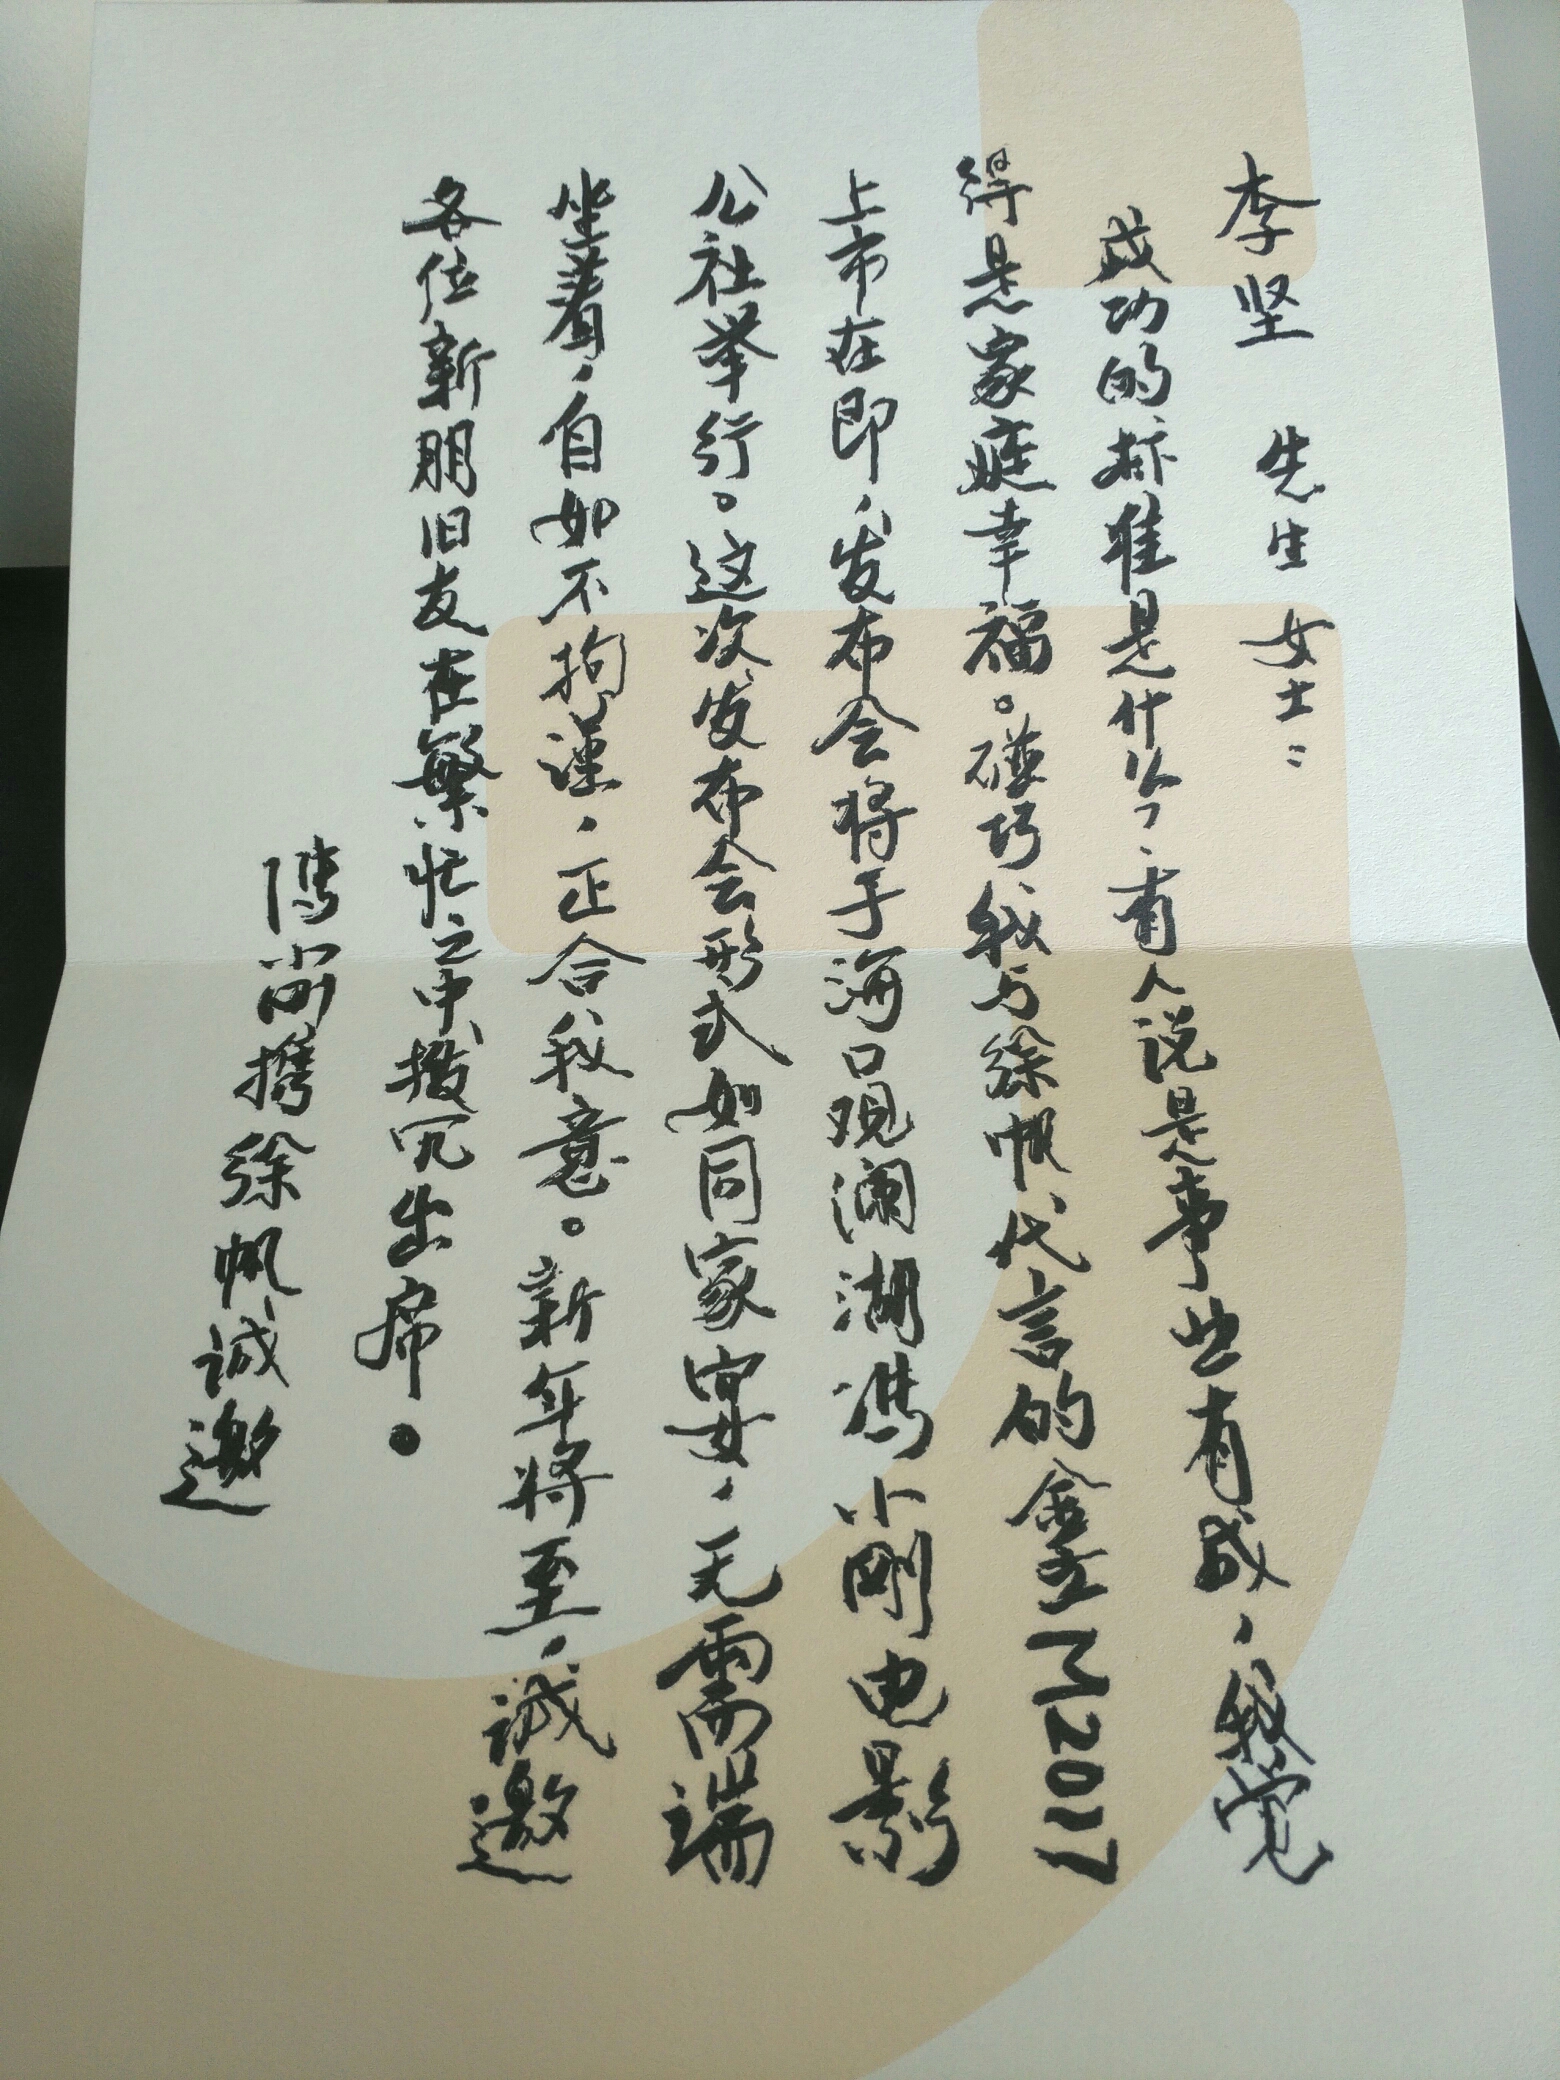 李坚 先生 女士：
成功的标准是什么、有人说是事业有成，我觉
得是家庭幸福。碰巧我与徐帆代言的金立M2017
上市在即，发布会将于海口观澜湖冯小刚电影
公社举行。这次发布会形式如同家宴，无需端
坐著，自如不拘谨，正合我意。新年将至，诚邀
各位新朋旧友在繁忙之中拨冗出席。
冯小刚携徐帆诚邀